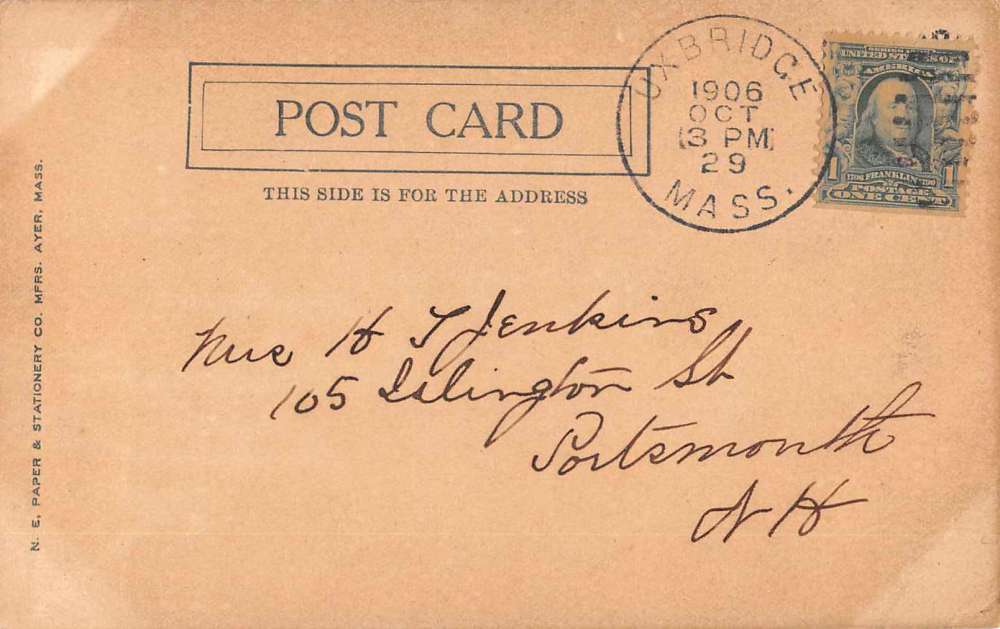 POST CARD
THIS SIDE IS FOR THE ADDRESS
UXBRIDGE
1906
OCT
3 PM
29
MASS.
UNITED STATES OF
AMERICA
1706 FRANKLIN 1790
1 1
POSTAGE
ONE CENT
H T Jenkins
105 Islington St
Portsmouth
N H
N. E, PAPER & STATIONERY CO. MFRS. AYER, MASS.